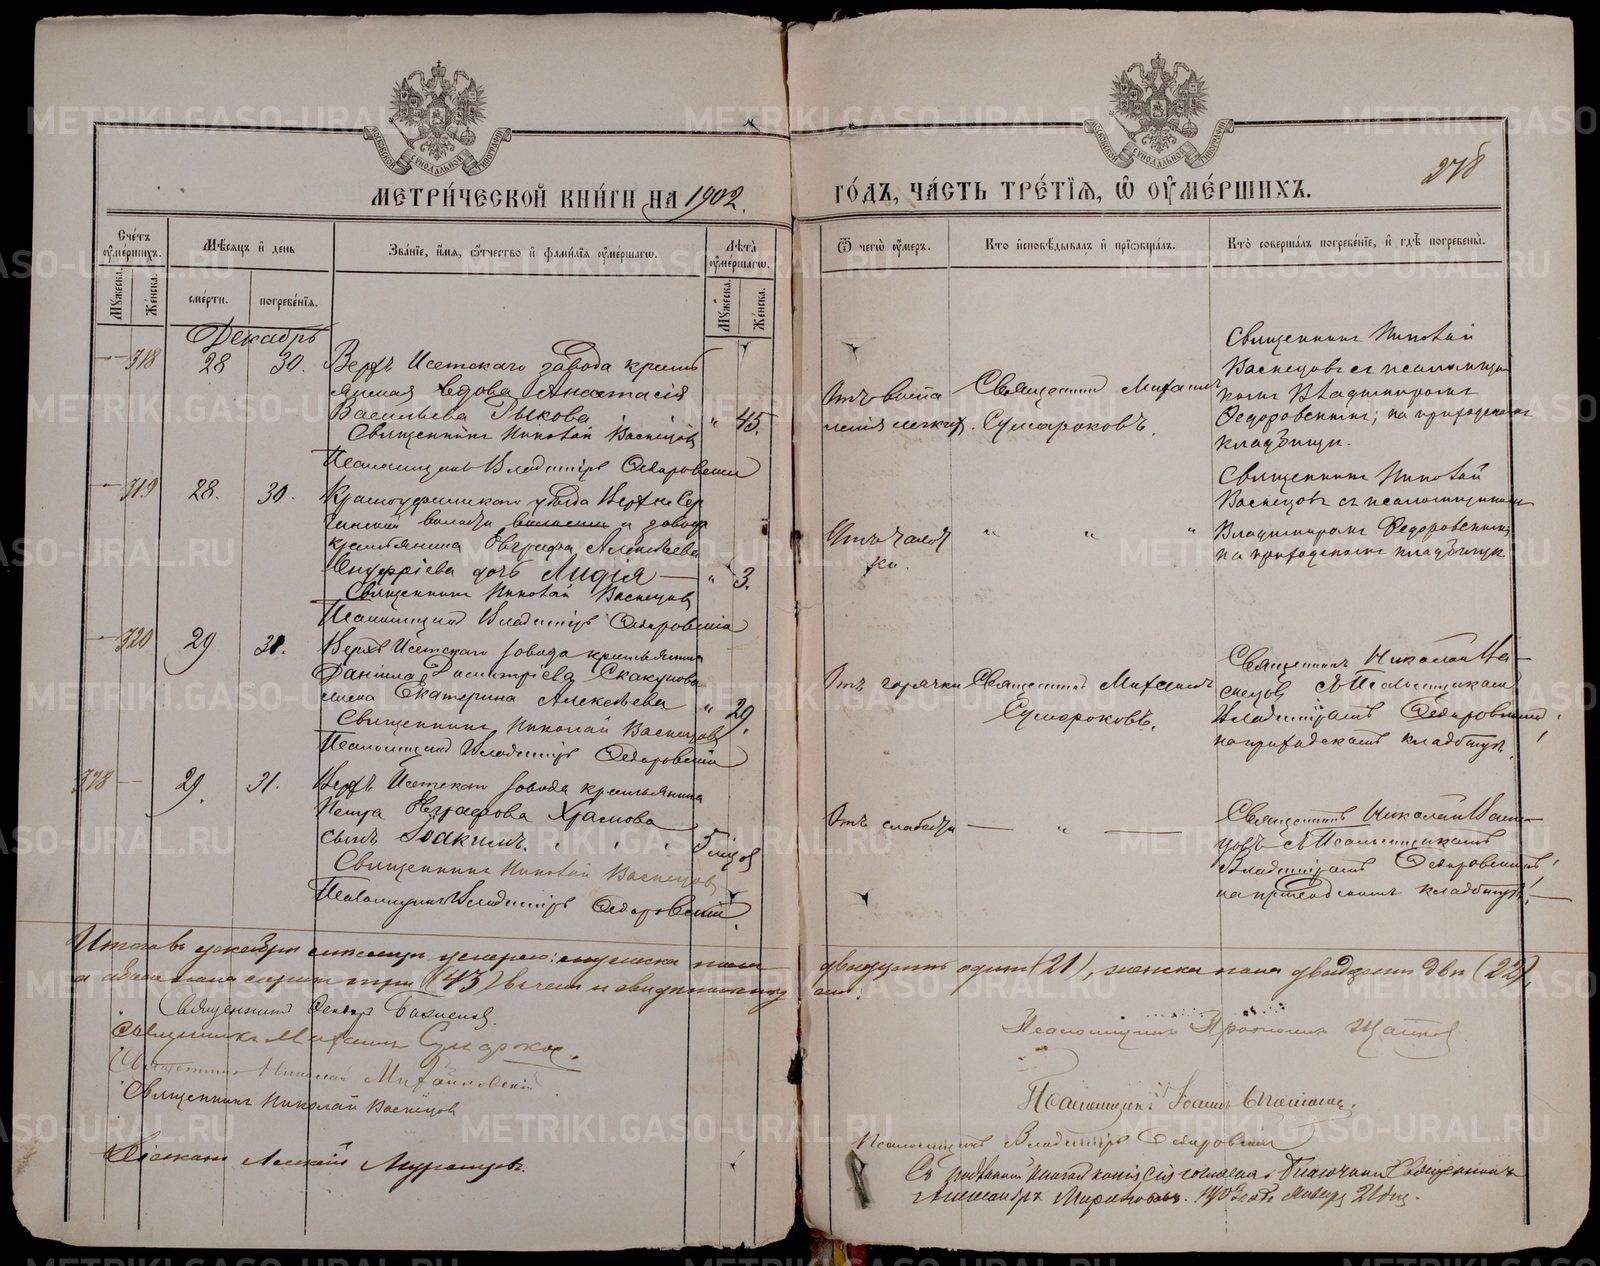 МЕТРИ́ЧЕСКОЙ КНИ́ГИ НА 1902.
ГО́ДЪ, ЧА́СТЬ ТРЕ́ТІѦ, Ѡ ОУМЕ́РШИХЪ.
278
Сче́тъ оуме́ршихъ.
Мѣ́сѧцъ и де́нь
Зва́ніе, и́мѧ, ѻ҆́тчество и фами́лїѧ оуме́ршагѡ.
Лѣ́та оуме́ршагѡ.
Мꙋ́жеска.
Же́нска.
сме́рти.
погребе́нїѧ.
Мꙋ́жеска.
Же́нска.
Ѿ чегѡ̀ оу́меръ.
Кто̀ и҆сповѣ́дывалъ и҆ прїѡбща́лъ.
Кто̀ соверша́лъ погребе́нїе, и҆ гдѣ̀ погребены̀.
Декабрь
318
28
30.
Верхъ Исетскаго завода крестья
янская вдова Анастасія
Васильева Рыкова
" 45.
Священникъ Николай Васнецовъ
Псаломщикъ Владиміръ Ѳедоровскій
Отъ воспа
ленія легких.
Священник Михаилъ
Сумароковъ.
Священникъ Николай
Васнецовъ съ псаломщи
комъ Владиміромъ
Ѳедоровскимъ, на приходскомъ
кладбищѣ.
319
28.
30.
Красноуфимскаго уѣзда Верхне Сер
гинской волости и завода
крестьянина Евграфа Алексѣева
дочь Лидія — " 3.
Священникъ Николай Васнецовъ
Псаломщикъ Владиміръ Ѳедоровскій
Отъ чахот
ки.
" " "
Священникъ Николай
Васнецовъ съ псаломщикомъ
Владиміромъ Ѳедоровскимъ,
на приходскомъ кладбищѣ
320
29
31.
Верхъ Исетскаго завода крестьянина
Даніила Димитріева Скакунова
жена Екатерина Алексѣева
" 29.
Священникъ Николай Васнецовъ
Псаломщикъ Владиміръ Ѳедоровскій
Отъ горячки
Священникъ Михаилъ
Сумароковъ.
Священникъ Николай Ва-
снецовъ съ Псаломщикомъ
Владиміромъ Ѳедоровскимъ,
на приходскомъ кладбищѣ.
378 —
29.
31.
Верхъ Исетскаго завода крестьянина
Петра Евграфова Храмова
сынъ Іоакимъ. . . .
5 мѣсяцев
Священникъ Николай Васнецовъ
Псаломщикъ Владиміръ Ѳедоровскій.
Отъ слабости
— " —
Священникъ Николай Васне-
цовъ съ Псаломщикомъ
Владиміромъ Ѳедоровскимъ,
на приходскомъ кладбищѣ. —
Итого въ декабрѣ мѣсяцѣ умерло: мужеска пола двадцать одинъ (21), женска пола двадцать два (22),
а обоего пола сорокъ три (43)
Священникъ
Священникъ Михаилъ Сумароковъ.
Священникъ Николай
Священникъ Николай Васнецовъ
Діаконъ Алексій
Псаломщикъ
Псаломщикъ Іоаннъ
Псаломщикъ Владиміръ Ѳедоровскій
Священникъ
Александръ 1903 года Января 21 дня.
METRIKI.GASO-URAL.RU